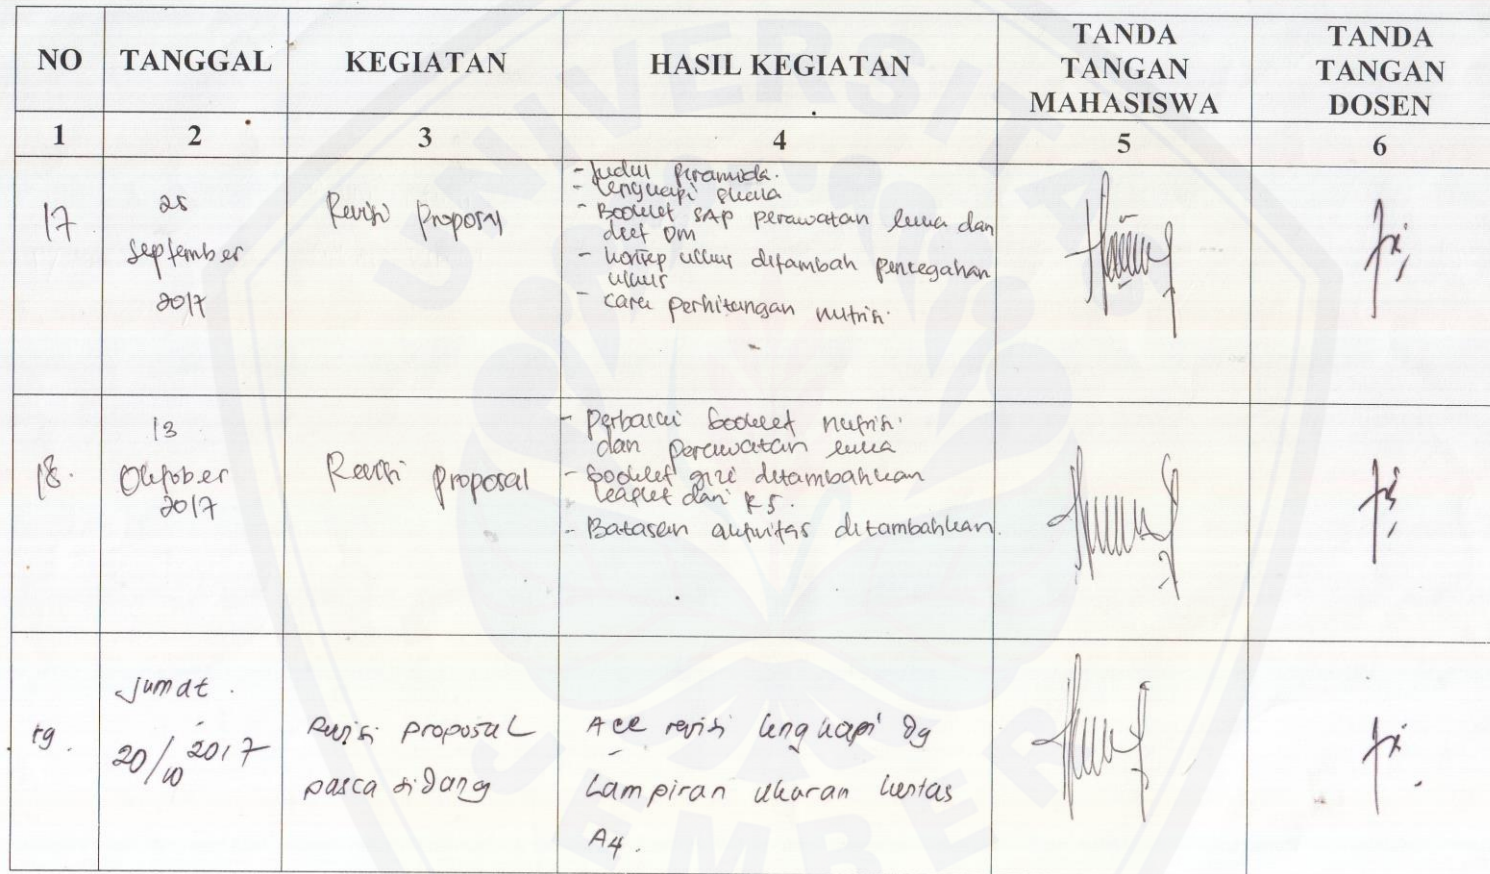 NO TANGGAL KEGIATAN HASIL KEGIATAN TANDA TANGAN MAHASISWA TANDA TANGAN DOSEN
1 2 3 4 5 6
17
25
September
2017
Revisi Proposal
- Judul piramida.
- lengkapi skala
- Booklet SAP perawatan luka dan
diet DM
- konsep ulkus ditambah pencegahan
ulkus
- cara perhitungan nutrisi.
18.
13
Oktober
2017
Revisi proposal
- perbaiki booklet nutrisi
dan perawatan luka
- booklet gizi ditambahkan
leaflet dari RS.
- Batasan aktivitas ditambahkan.
19.
Jumat.
20/10 2017
Revisi proposal
pasca sidang
Acc revisi lengkapi dg
Lampiran ukuran kertas
A4.
UNIVERSITAS
JEMBER